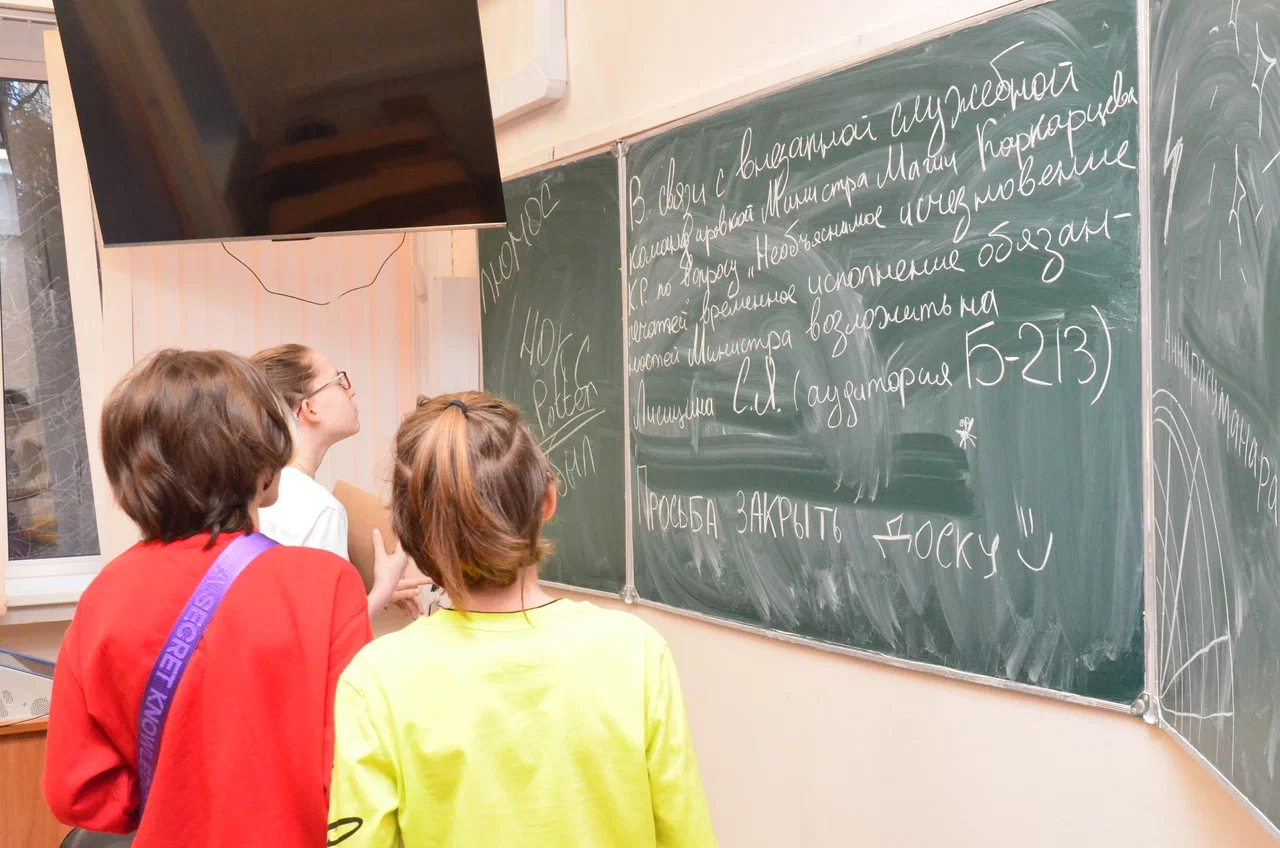 ЛЮМОС
НОКС
Potter
В связи с внезапной служебной
командировкой Министра Магии Коркарцева
К.Р. по вопросу „Необъяснимое исчезновение
печатей временное исполнение обязан-
ностей Министра возложить на
Лисицина С.Я. (аудитория Б-213)
*
ПРОСЬБА ЗАКРЫТЬ ДОСКУ
A SECRET KNOWLE